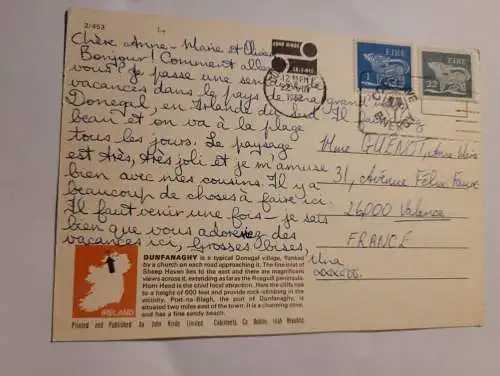 2/453
Chère Anne-Marie et Olivier
Bonjour! Comment allez
vous? Je passe une semaine de
vacances dans le pays de ma grand
Donegal, en Irlande du Sud. Il
beau et on va à la plage
tous les jours. Le paysage
est très, très joli et je m'amuse
bien avec mes cousins. Il y a
beaucoup de choses à faire ici.
Il faut venir une fois - je sais
bien que vous adorez des
vacances ici, Grosses bises,
Una
xxxxoo.
EIRE
1
EIRE
22
Mme GUENOT, Anne Marie
31, Avenue Félix Faure
26000 Valence
FRANCE
DUNFANAGHY is a typical Donegal village, flanked
by a church on each road approaching it. The fine inlet of
Sheep Haven lies to the east and there are magnificent
views across it, extending as far as the Rosguill peninsula.
Horn Head is the chief local attraction. Here the cliffs rise
to a height of 600 feet and provide rock-climbing in the
vicinity. Port-na-Blagh, the port of Dunfanaghy, is
situated two miles east of the town. It is a charming cove,
and has a fine sandy beach.
IRELAND
Printed and Published by John Hinde Limited, Cabinteely, Co. Dublin, Irish Republic.